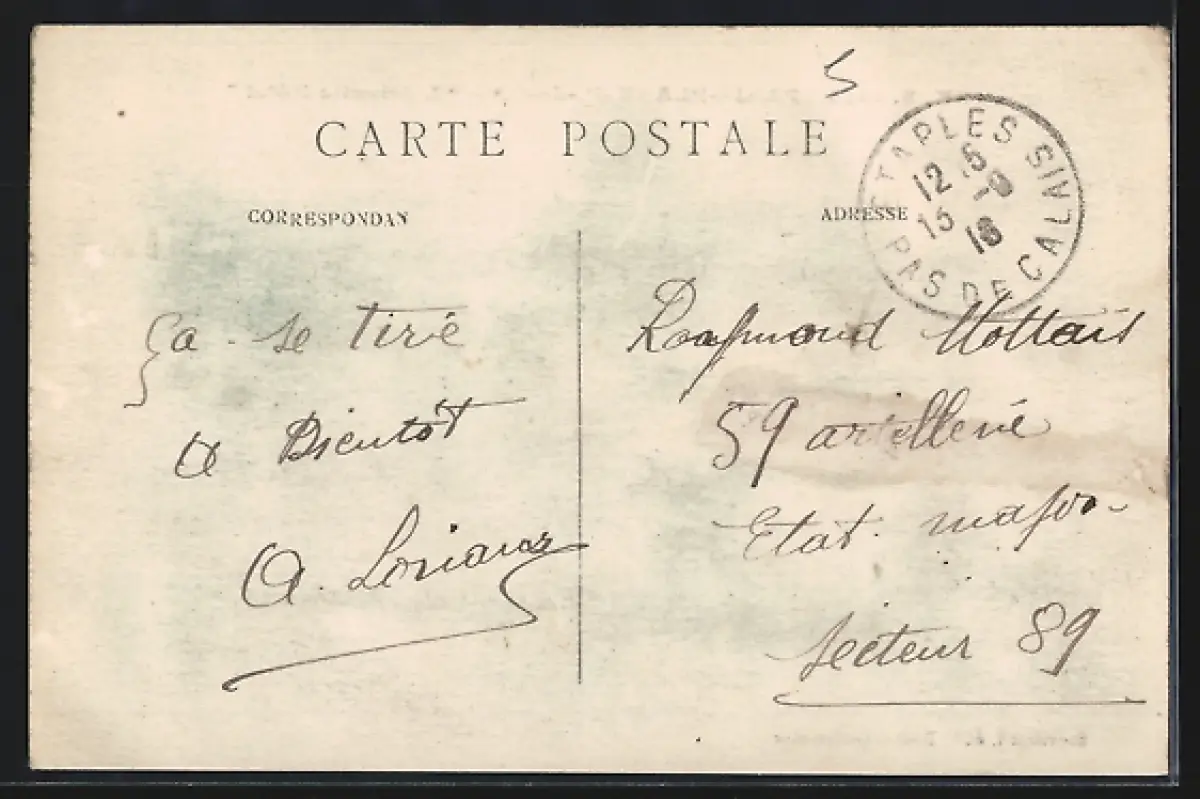 5
CARTE POSTALE
CORRESPONDAN
ADRESSE
ETAPLES
PAS DE CALAIS
12 15
15 -9
16
Ça se tire
a Bientôt
A.
Raymond Mottais
59 artillerie
Etat. major
Secteur 89